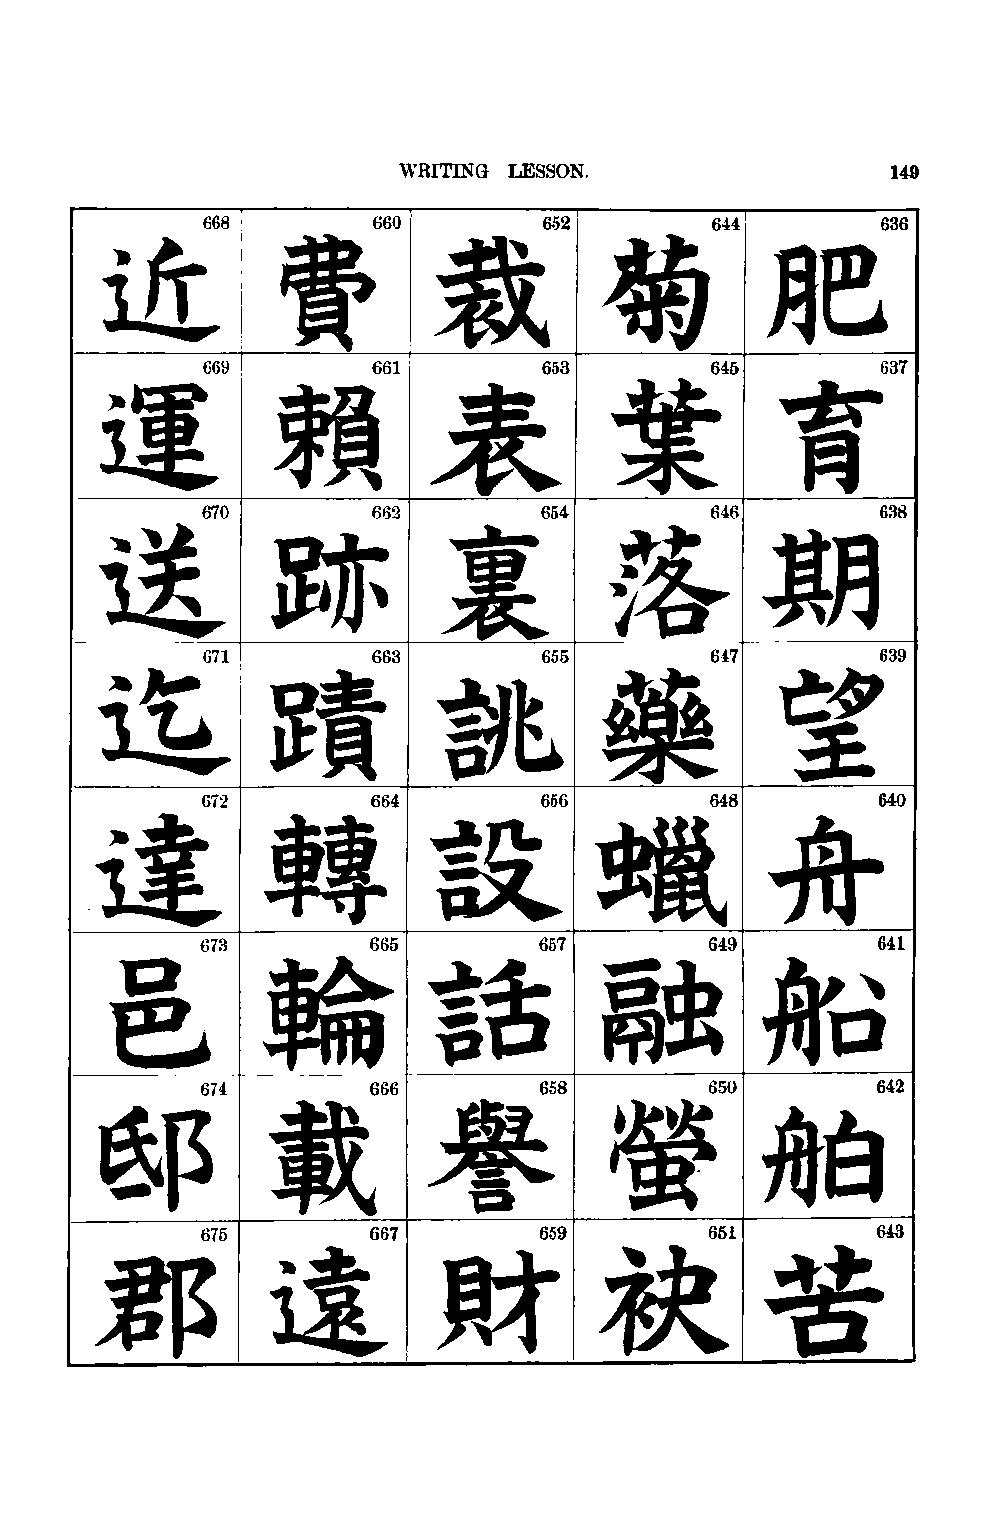 WRITING LESSON. 149
636 肥
637 育
638 期
639 望
640 舟
641 船
642 舶
643 苦
644 菊
645 葉
646 落
647 藥
648 蠟
649 融
650 螢
651 袂
652 裁
653 表
654 裏
655 誂
656 設
657 話
658 譽
659 財
660 費
661 賴
662 跡
663 蹟
664 轉
665 輪
666 載
667 遠
668 近
669 運
670 送
671 迄
672 達
673 邑
674 邸
675 郡